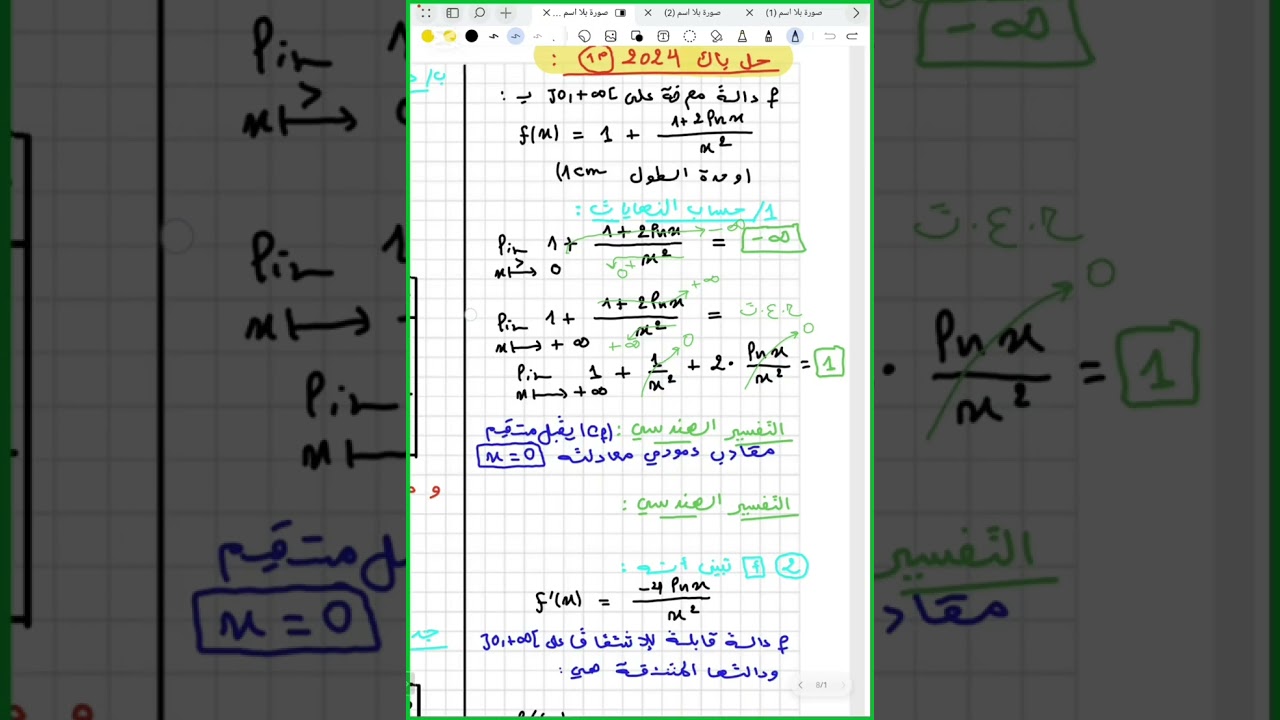 صورة بلا اسم ...
صورة بلا اسم (2)
صورة بلا اسم (1)
حل باك 2024 1م :
f دالة معرفة على ]0,+∞[ بـ :
f(x) = 1 + (1+2ln x)/x²
(وحدة الطول 1cm)
1/ حساب النهايات :
lim x→0 (>) 1 + (1+2ln x)/x² = -∞
-∞
0⁺
lim x→+∞ 1 + (1+2ln x)/x² = ح.ع.ت
+∞
+∞
lim x→+∞ 1 + 1/x² + 2. ln x/x² = 1
0
0
التفسير الهندسي : (Cf) يقبل مستقيم
مقارب عمودي معادلته x=0
التفسير الهندسي :
2 أ تبين أنه :
f'(x) = -4 ln x/x²
f دالة قابلة للإشتقاق على ]0,+∞[
ودالتها المشتقة هي :
8/1